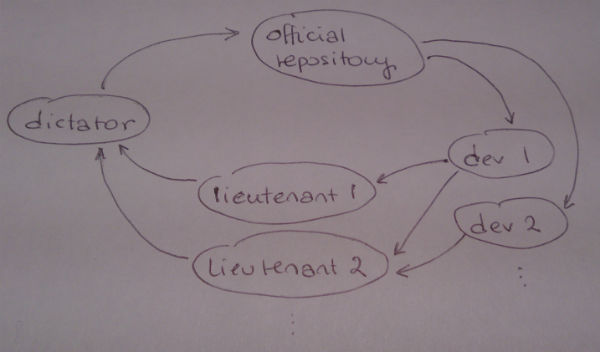 official
repository
dictator
dev 1
lieutenant 1
dev 2
Lieutenant 2